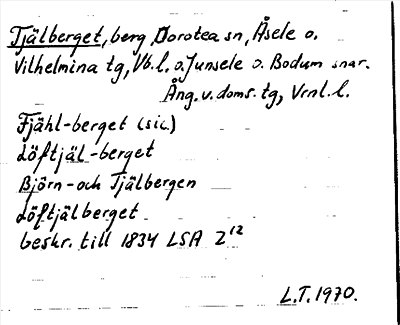 Tjälberget, berg Dorotea sn, Åsele o.
Vilhelmina tg, Vb.l. o. Junsele o. Bodum snar.
Ång. v. doms. tg, Vrnl. l.
Fjähl-berget (sic.)
Löftjäl-berget
Björn- och Tjälbergen
Löftjälberget
beskr. till 1834 LSA Z¹²
L.T. 1970.